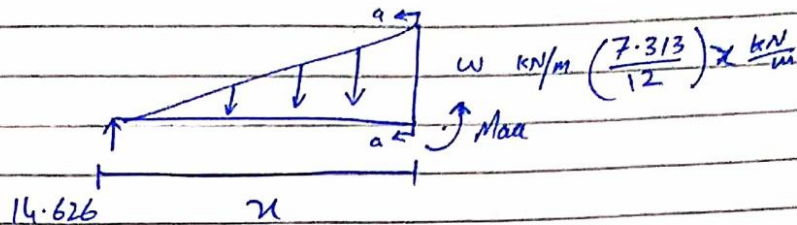 a
w kN/m (7.313/12) x kN/m
a Maa
14.626 x